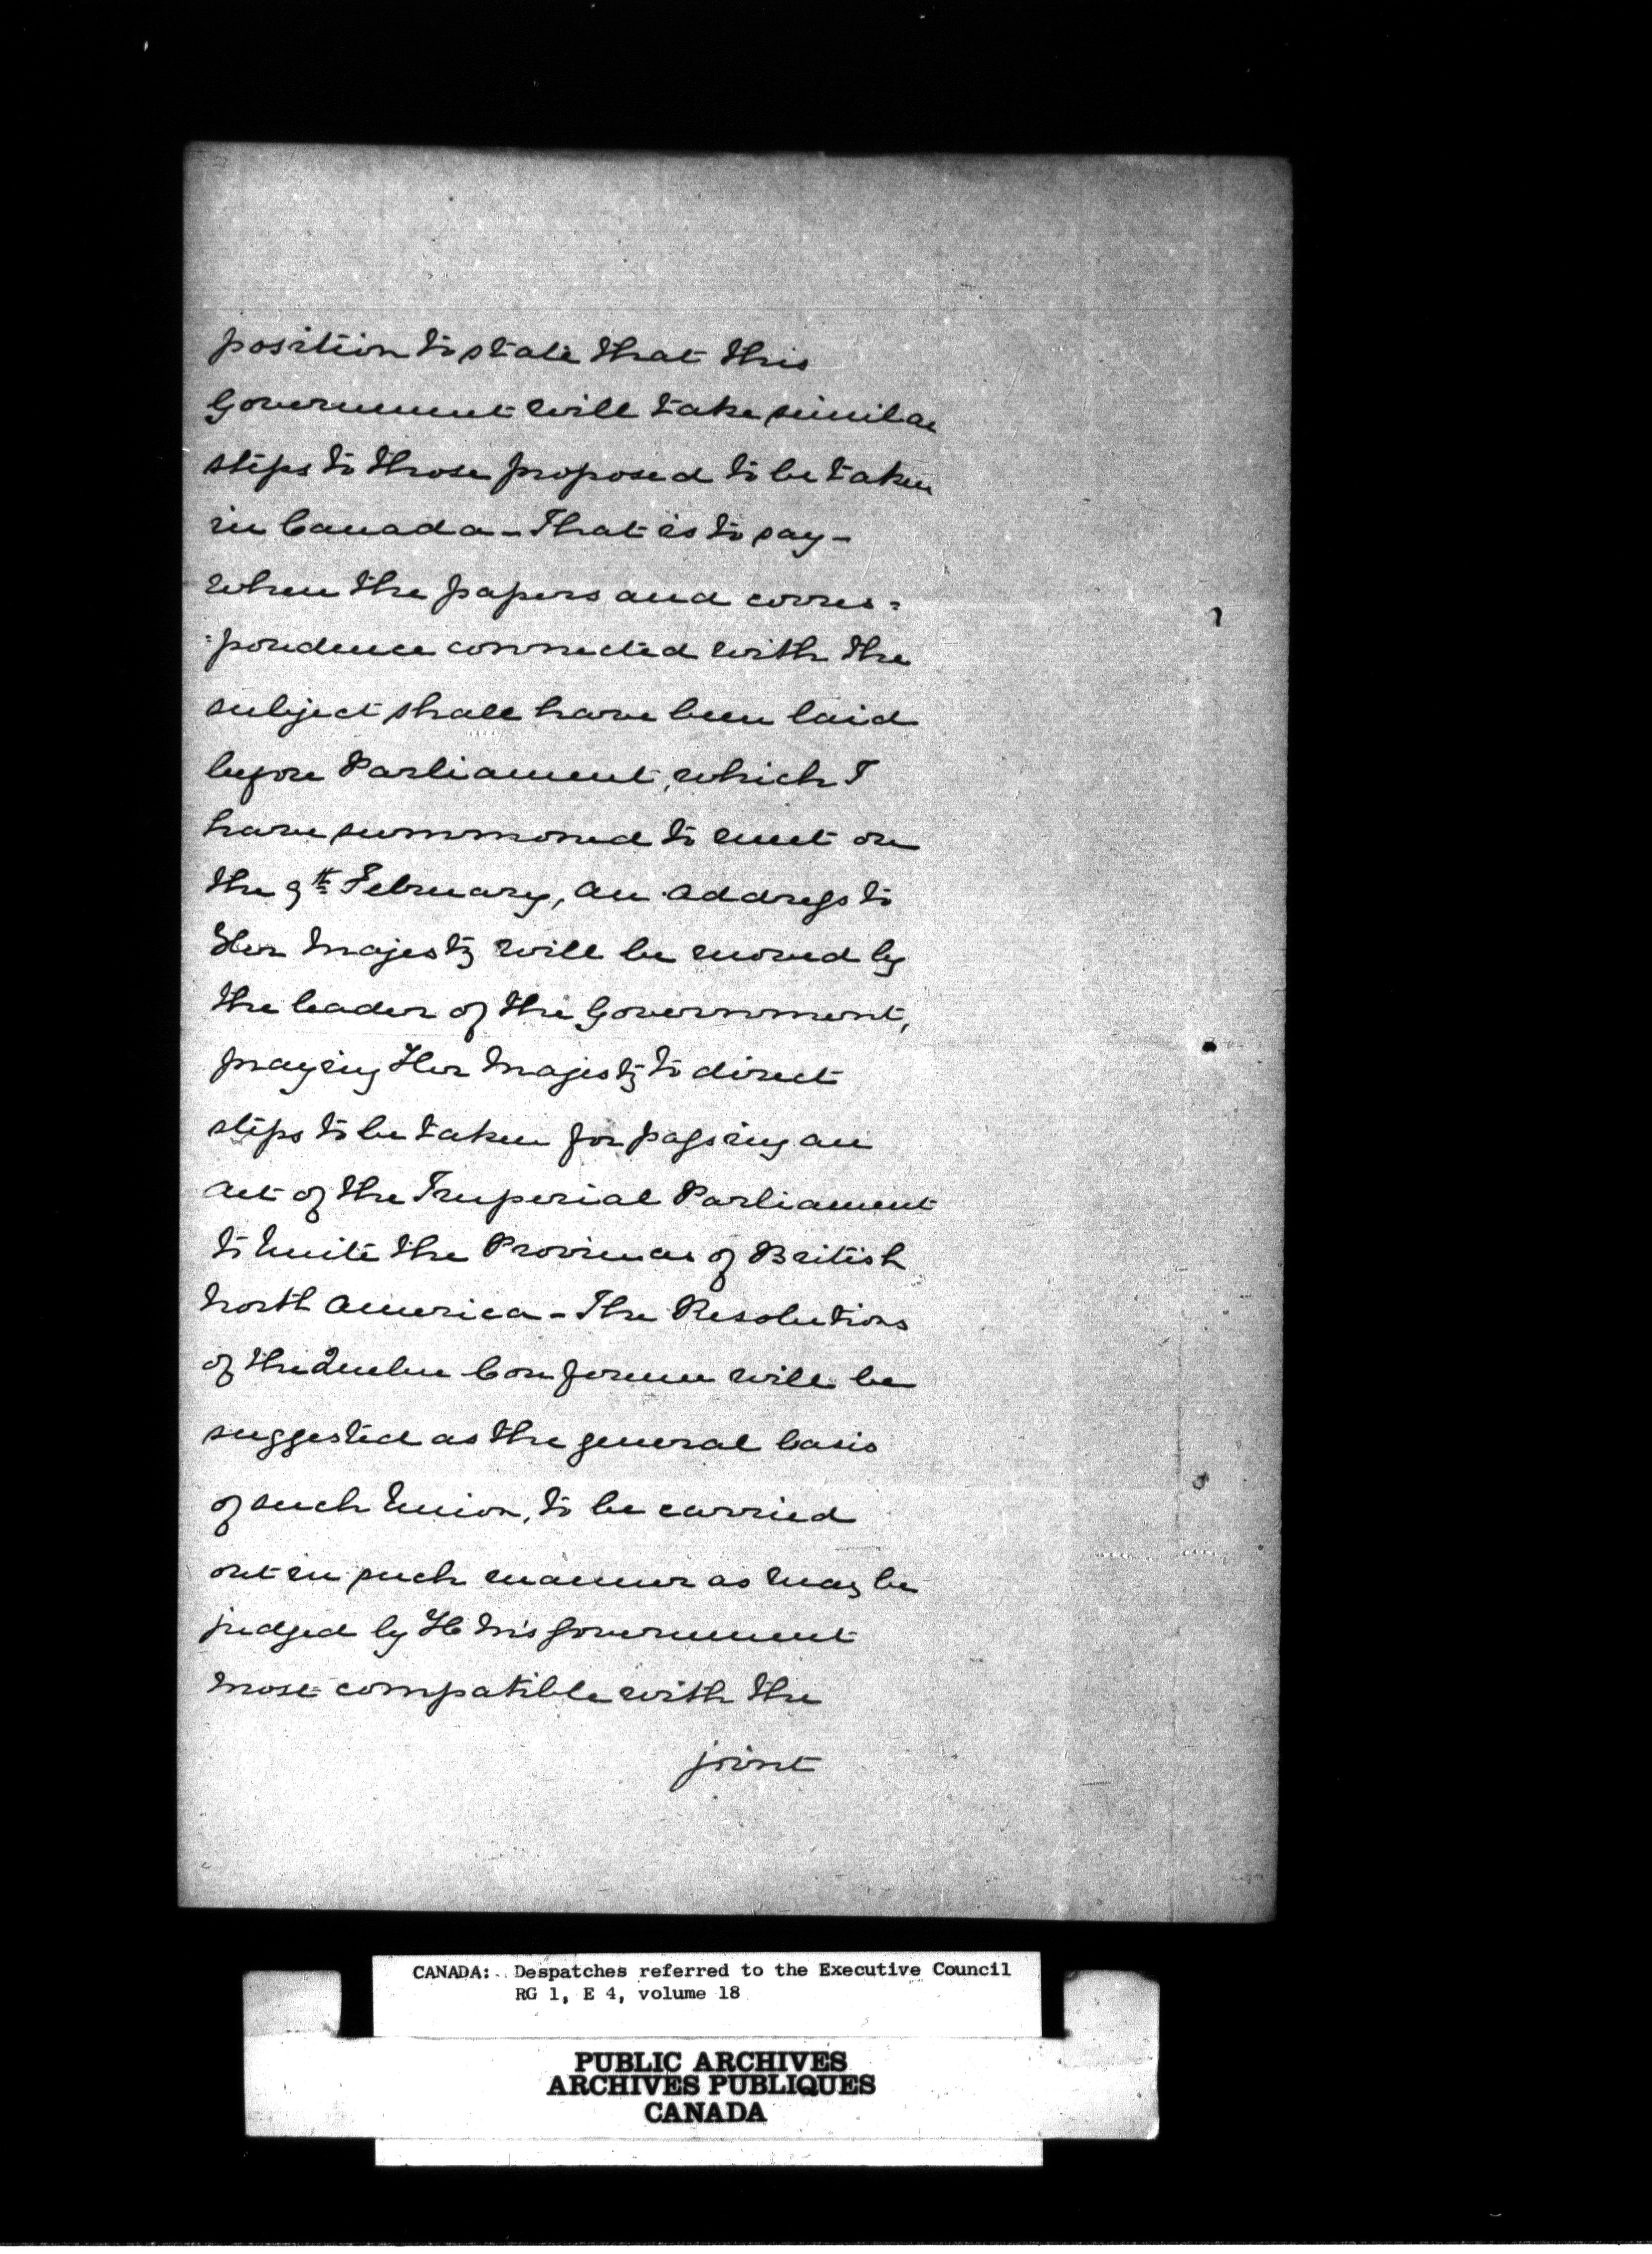 position to state that this
Government will take similar
steps to those proposed to be taken
in Canada - That is to say -
when the papers and corres=
=pondence connected with the
subject shall have been laid
before Parliament, which I
have summoned to meet on
the 9th February, an address to
Her Majesty will be moved by
the leader of the Government,
praying Her Majesty to direct
steps to be taken for passing an
Act of the Imperial Parliament
to Unite the Provinces of British
North America - The Resolutions
of the Quebec Conference will be
suggested as the general basis
of such Union, to be carried
out in such manner as may be
judged by H M's Government
most compatible with the
joint
CANADA: Despatches referred to the Executive Council
RG 1, E 4, volume 18
PUBLIC ARCHIVES
ARCHIVES PUBLIQUES
CANADA